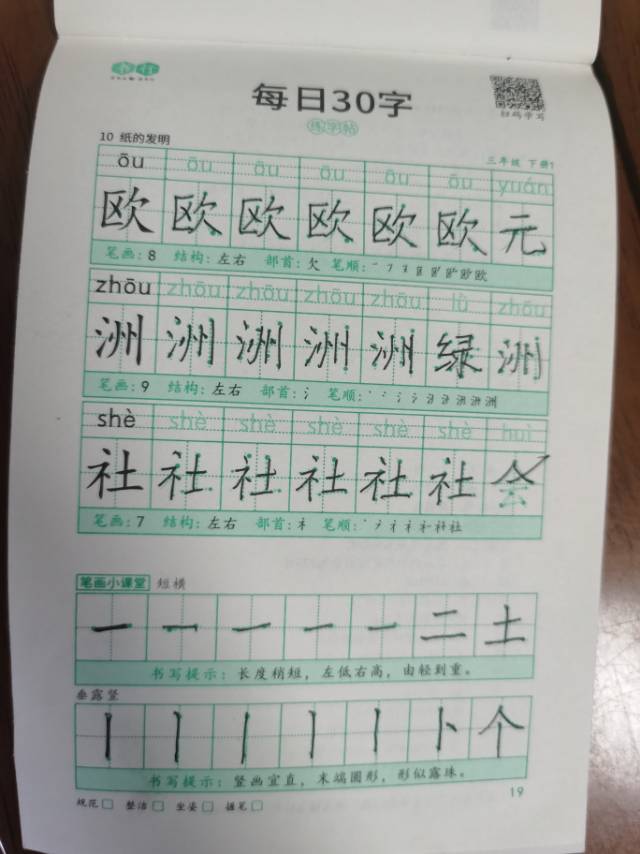 书行
每日30字
练字帖
扫码学习
10 纸的发明
三年级 下册1
ōu ōu ōu ōu ōu ōu yuán
欧 欧 欧 欧 欧 欧 元
笔画: 8 结构: 左右 部首: 欠 笔顺:
zhōu zhōu zhōu zhōu zhōu lǜ zhōu
洲 洲 洲 洲 洲 绿 洲
笔画: 9 结构: 左右 部首: 氵 笔顺:
shè shè shè shè shè shè huì
社 社 社 社 社 社 会
笔画: 7 结构: 左右 部首: 礻 笔顺:
笔画小课堂 短横
一 一 一 一 一 二 土
书写提示: 长度稍短, 左低右高, 由轻到重。
垂露竖
丨 丨 丨 丨 丨 卜 个
书写提示: 竖画宜直, 末端圆形, 形似露珠。
规范 整洁 坐姿 握笔
19